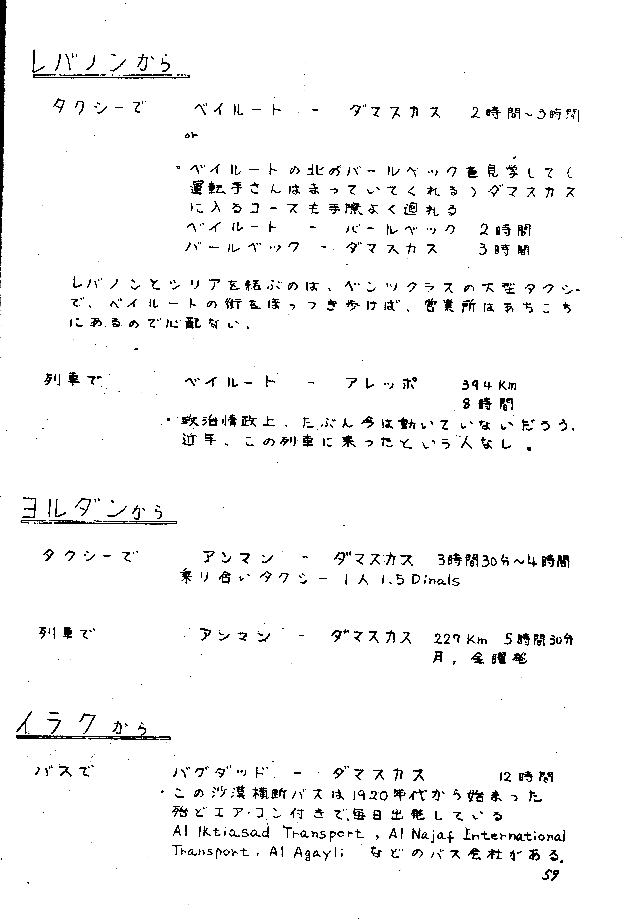 レバノンから
タクシーで ベイルート - ダマスカス 2時間~3時間
or
・ベイルートの北のバールベックを見学して(
運転手さんはまっていてくれる)ダマスカス
に入るコースも手際よく廻れる
ベイルート - バールベック 2時間
バールベック - ダマスカス 3時間
レバノンとシリアを結ぶのは、ベンツクラスの大型タクシー
で、ベイルートの街をほっつき歩けば、営業所はあちこち
にあるので心配ない。
列車で ベイルート - アレッポ 394Km
8時間
・政治情政上、たぶん今は動いていないだろう、
近年、この列車に乗ったという人なし。
ヨルダンから
タクシーで アンマン - ダマスカス 3時間30分~4時間
乗り合いタクシー 1人 1.5 Dinals
列車で アンマン - ダマスカス 227Km 5時間30分
月,金曜発
イラクから
バスで バグダッド - ダマスカス 12時間
・この沙漠横断バスは1920年代から始まった
殆どエア・コン付きで、毎日出発している
Al Iktiasad Transport, Al Najaf International
Transport, Al Agayli などのバス会社がある。
59